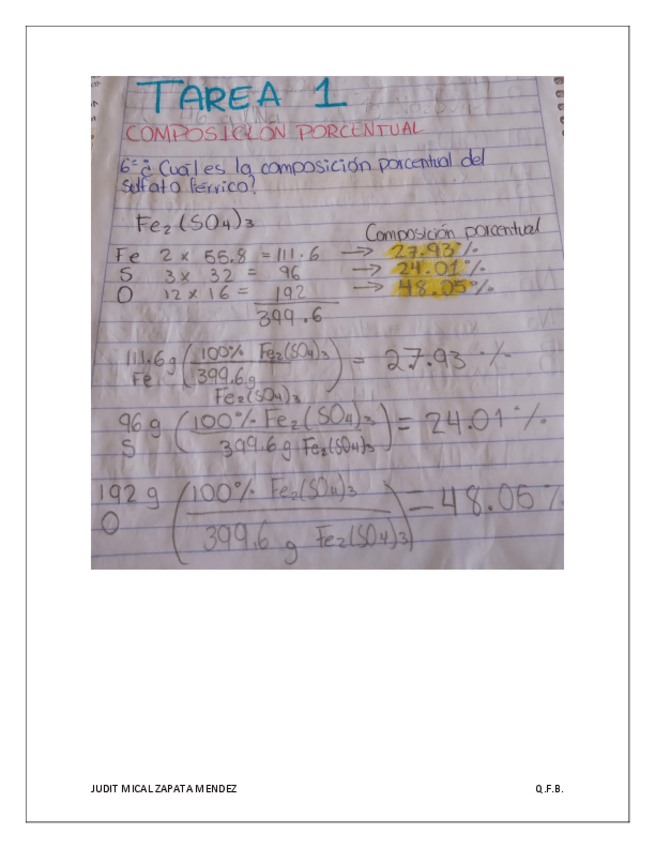 TAREA 1
COMPOSICIÓN PORCENTUAL
6= ¿Cuál es la composición porcentual del
sulfato férrico?
Fe₂(SO₄)₃
Composición porcentual
Fe 2 x 55.8 = 111.6 → 27.93%
S 3 x 32 = 96 → 24.01%
O 12 x 16 = 192 → 48.05%
399.6
111.6 g Fe (100% Fe₂(SO₄)₃ / 399.6 g Fe₂(SO₄)₃) = 27.93 %
96 g S (100% Fe₂(SO₄)₃ / 399.6 g Fe₂(SO₄)₃) = 24.01 %
192 g O (100% Fe₂(SO₄)₃ / 399.6 g Fe₂(SO₄)₃) = 48.05 %
JUDIT MICAL ZAPATA MENDEZ Q.F.B.